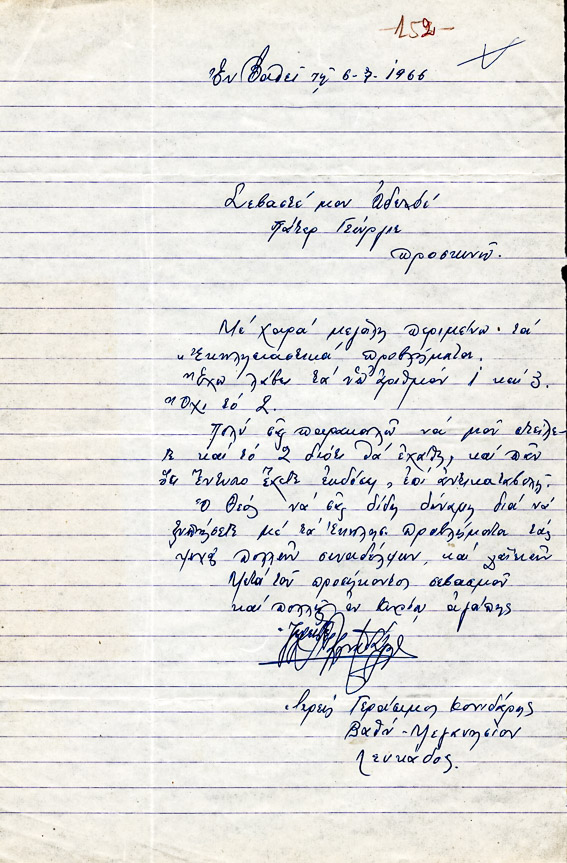 -152-
Ἐν Βαθεῖ τῇ 6-7-1966
Σεβαστέ μου Ἀδελφέ
Πάτερ Γεώργιε
προσκυνῶ.
Μέ χαρά μεγάλη περιμένω τά
"Ἐκκλησιαστικά προβλήματα.
Ἔχω λάβει τά ὑπ' ἀριθμόν 1 καί 3.
Ὄχι τό 2.
Πολύ σᾶς παρακαλῶ νά μοῦ στείλε-
τε καί τό 2 διότι θά ἐχάθη, καί πᾶν
ὅτι ἔχετε ἐκδόσει, ἐπί ἀντικαταβολῇ.
Ὁ Θεός νά σᾶς δίδῃ δύναμη διά νά
ξυπνήσετε μέ τά Ἐκκλησ. προβλήματα τάς
ψυχάς πολλῶν συναδέλφων, καί λαϊκῶν
Μετά τοῦ προσήκοντος σεβασμοῦ
καί πολλῆς ἐν Κυρίῳ ἀγάπης
Ἱερεύς Γεράσιμος Κονιδάρης
Βαθύ-Μεγανησίου
Λευκάδος.